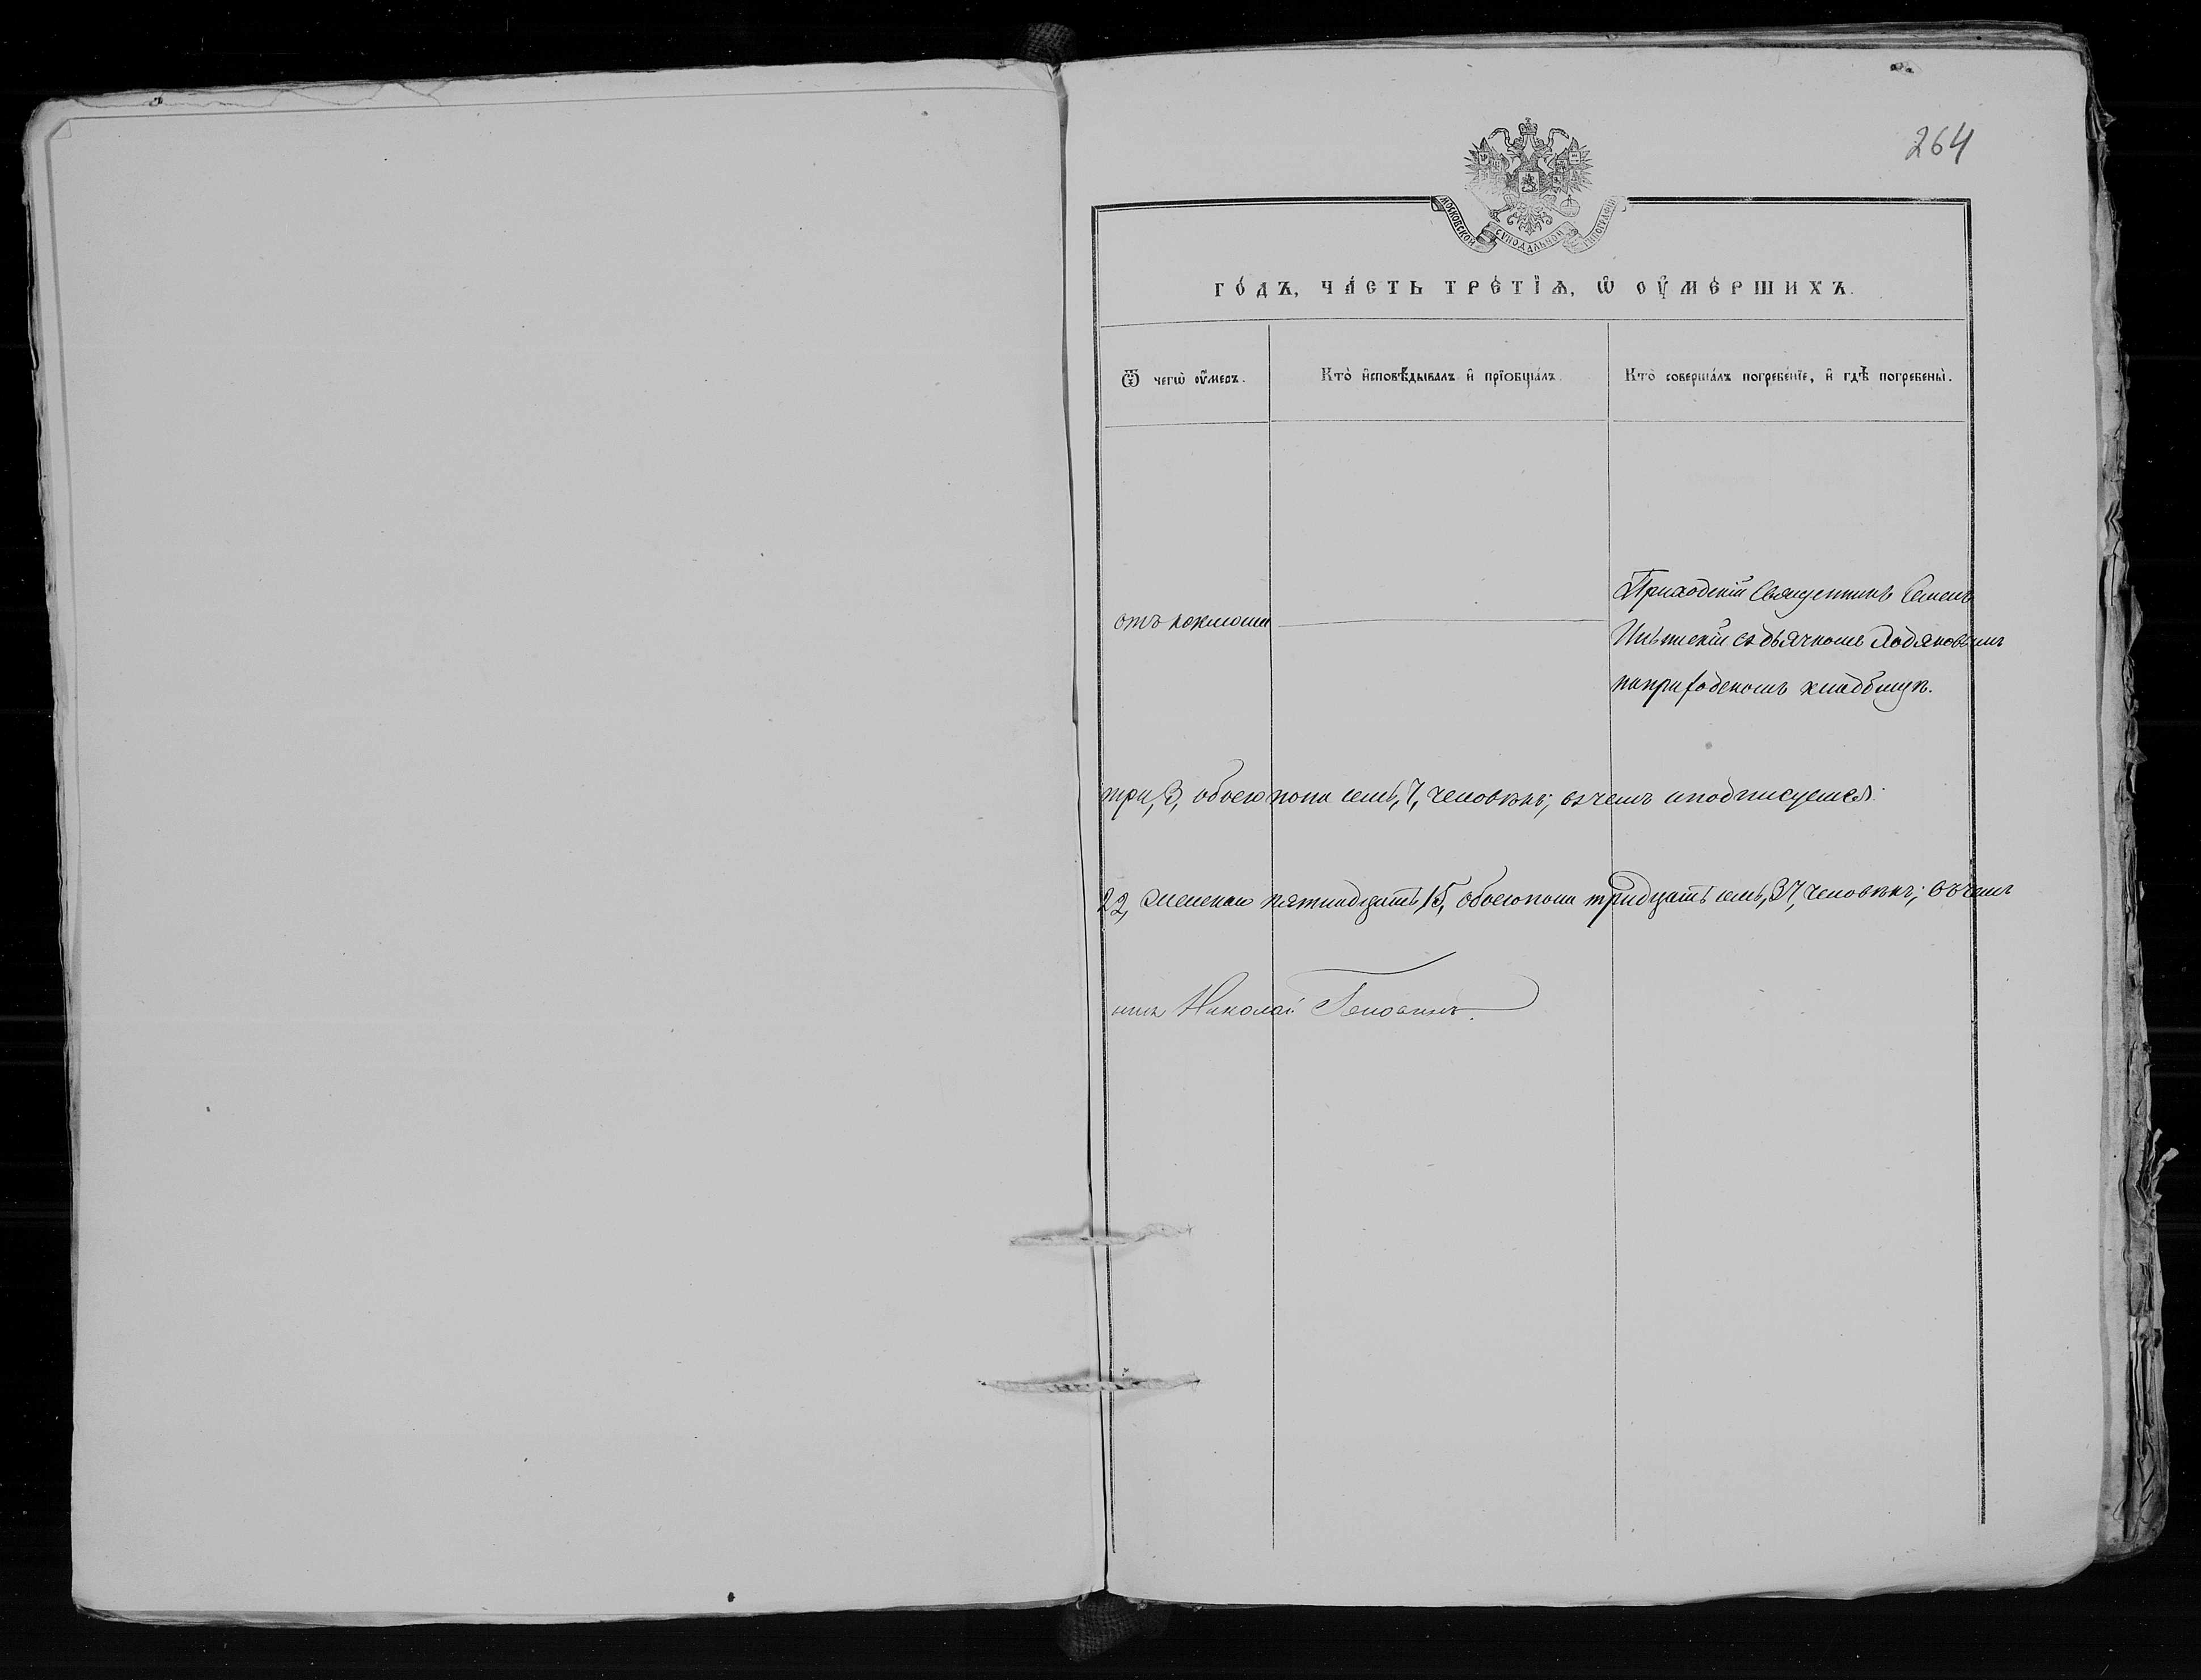 264
МОСКОВСКОЙ СѴНОДАЛЬНОЙ ТИПОГРАФІИ
ГО́ДЪ, ЧА́СТЬ ТРЕ́ТІѦ, Ѡ҆ ОУ҆МЕ́РШИХЪ.
Ѿ чегѡ̀ оу҆́меръ.
Кто̀ и҆сповѣ́дывалъ и҆ прїобща́лъ.
Кто̀ соверша́лъ погребе́нїе, и҆ гдѣ̀ погребены̀.
отъ коклюша
Приходскій Священникъ Семенъ
съ дьячкомъ
на приходскомъ кладбищѣ.
три, 3, обоего пола семь, 7, человѣкъ; въ чемъ и подписуемся:
22, женскаго пятнадцать, 15, обоего пола тридцать семь, 37, человѣкъ; въ чемъ
Николай